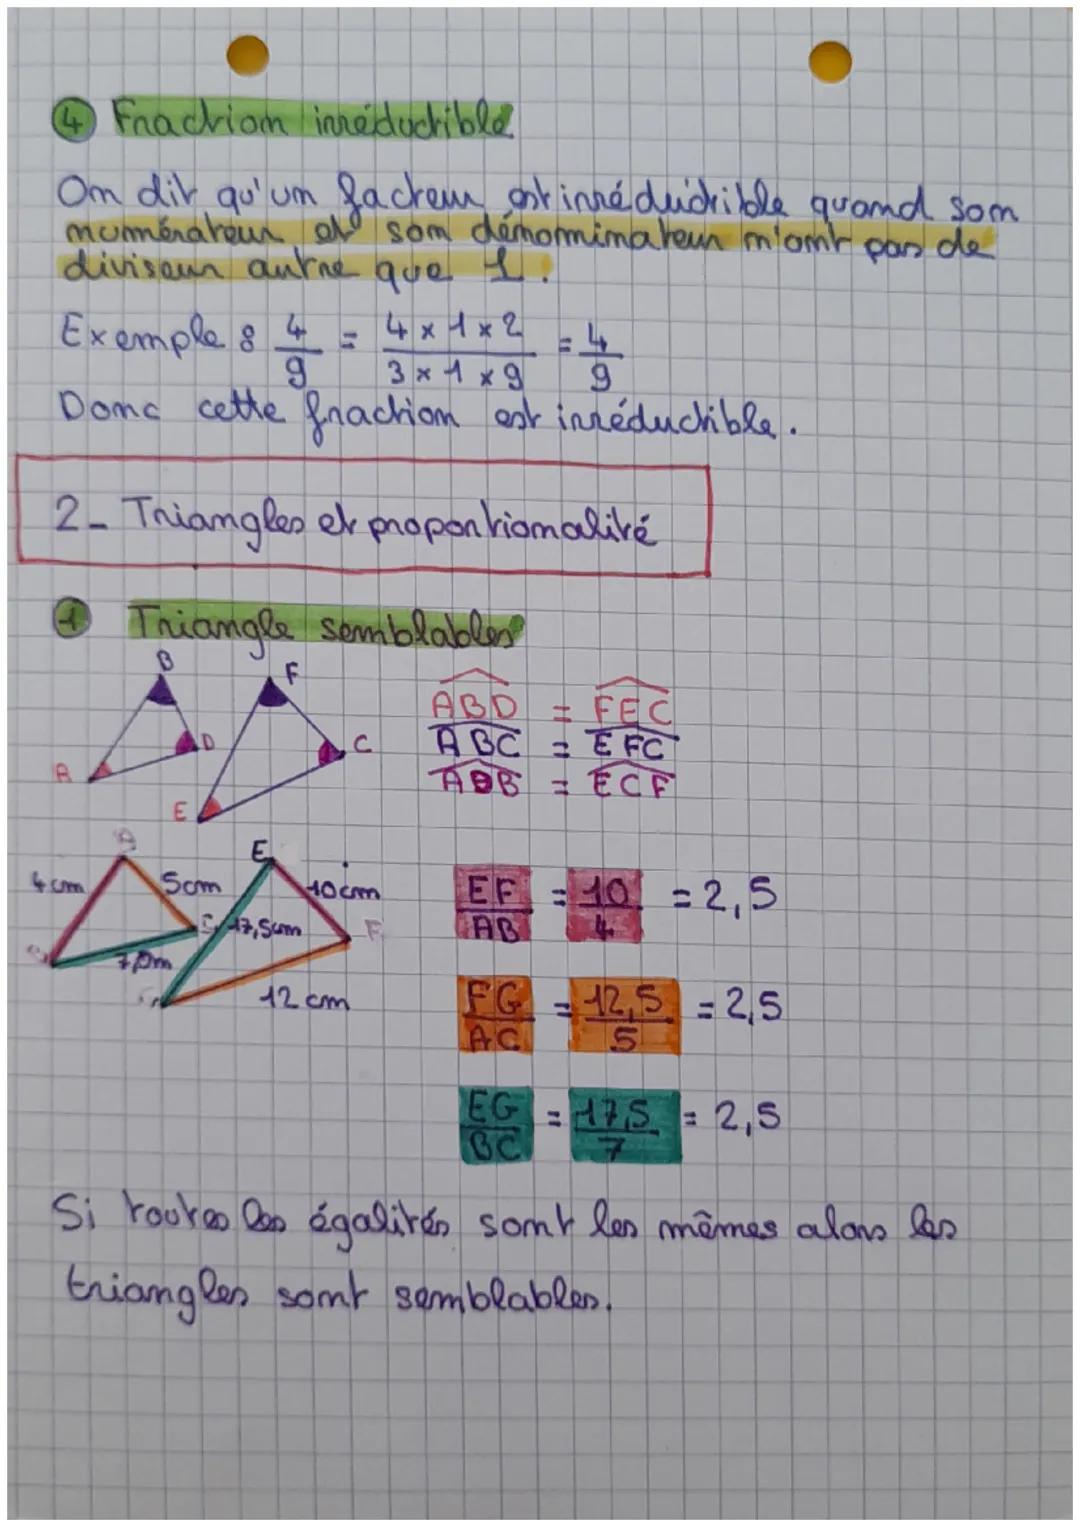 4 Fraction irréductible
On dit qu'un facteur est irréductible quand son
numérateur et son dénominateur n'ont pas de
diviseur autre que 1.
Exemple : 4/9 = 4 x 1 x 2 / 3 x 1 x 9 = 4/9
Donc cette fraction est irréductible.
2- Triangles et proportionnalité
1 Triangle semblables
B F
ABD = FEC
A D C E
ABC = EFC
ADB = ECF
A E
4 cm 5cm 10cm
EF/AB = 10/4 = 2,5
C 17,5cm F
7cm
G 12 cm
FG/AC = 12,5/5 = 2,5
EG/BC = 17,5/7 = 2,5
Si toutes les égalités sont les mêmes alors les
triangles sont semblables.